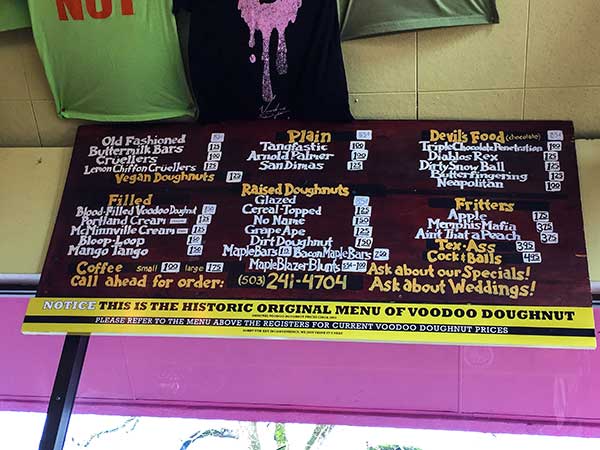 NOT
Old Fashioned
Buttermilk Bars
Crüellers 125
Lemon Chiffon Crüellers 125
Vegan Doughnuts 125
Filled
Blood-Filled Voodoo Doughnut
Portland Cream
McMinnville Cream
Bloop-Loop
Mango Tango
Coffee small 100 large 175
Call ahead for order: (503) 241-4704
Plain
Tangtastic
Arnold Palmer 100
San Dimas 125
Raised Doughnuts
Glazed
Cereal-Topped
No Name
Grape Ape 125
Dirt Doughnut
Maple Bars Bacon Maple Bars
Maple Blazer Blunts
Devil's Food (chocolate)
Triple Chocolate Penetration
Diablos Rex
Dirty Snow Ball
Butterfingering
Neapolitan 100
Fritters
Apple 175
Memphis Mafia 375
Ain't That a Peach 375
Tex-Ass 395
Cock & Balls 495
Ask about our Specials!
Ask about Weddings!
NOTICE THIS IS THE HISTORIC ORIGINAL MENU OF VOODOO DOUGHNUT
PLEASE REFER TO THE MENU ABOVE THE REGISTERS FOR CURRENT VOODOO DOUGHNUT PRICES